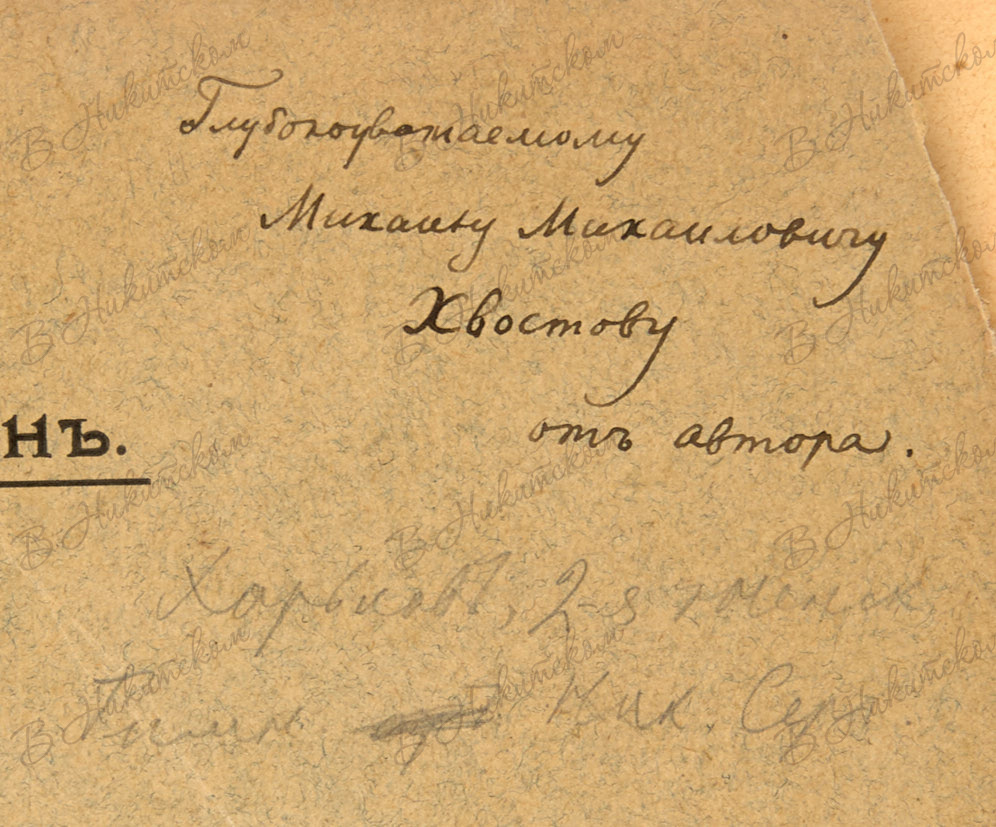 Глубокоуважаемому
Михаилу Михаиловичу
Хвостову
нъ.
отъ автора.
Харьковъ, 2-я женск
Гимн. Ник.
В Никитском